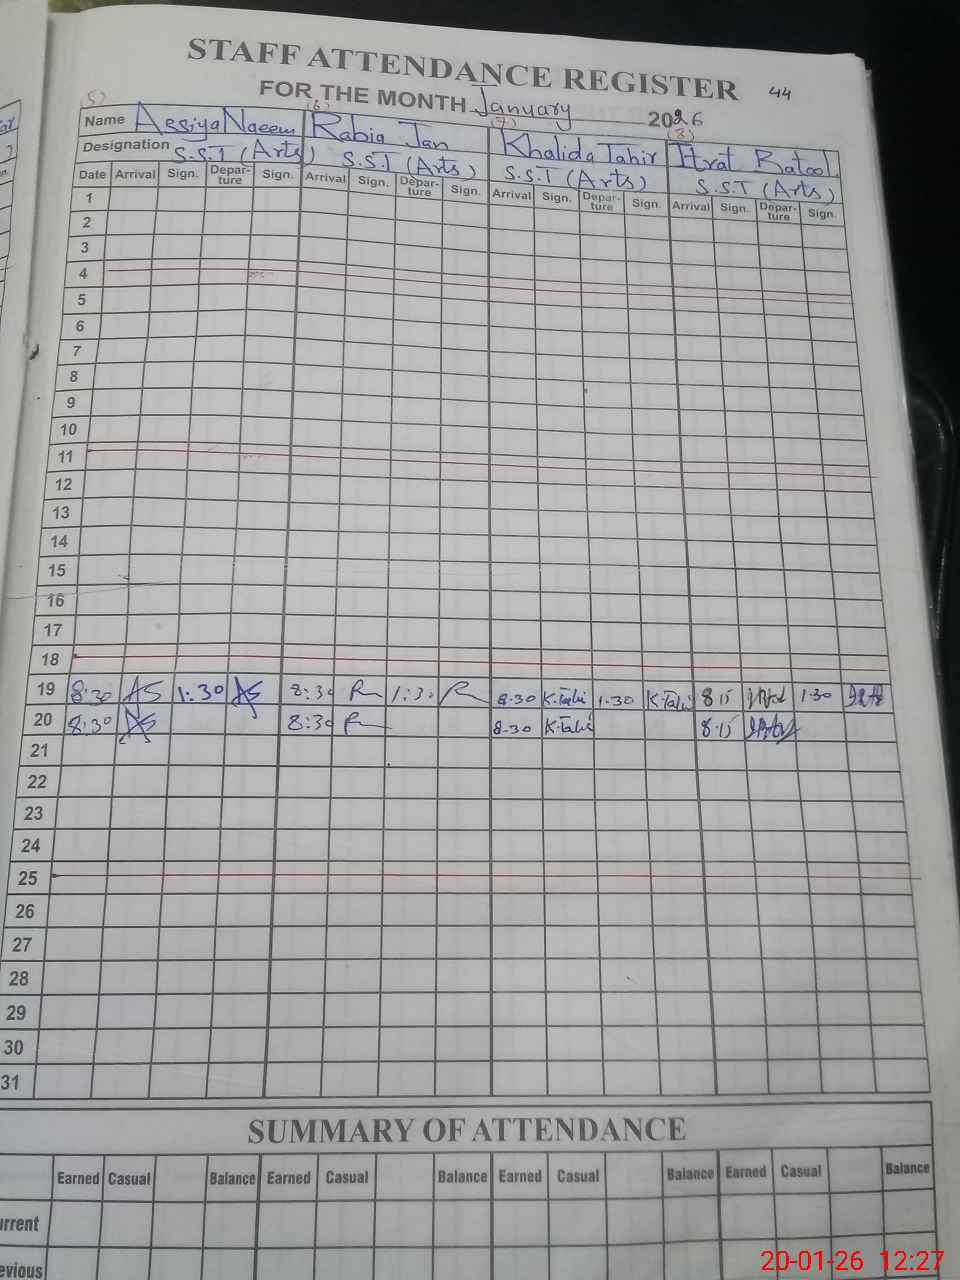 STAFF ATTENDANCE REGISTER
44
FOR THE MONTH January 2026
(5) (6) (7) (8)
Name Assiya Naeem Rabia Jan Khalida Tahir Itrat Batool
Designation S.S.T (Arts) S.S.T (Arts) S.S.T (Arts) S.S.T (Arts)
Date Arrival Sign. Depar-ture Sign. Arrival Sign. Depar-ture Sign. Arrival Sign. Depar-ture Sign. Arrival Sign. Depar-ture Sign.
1
2
3
4
5
6
7
8
9
10
11
12
13
14
15
16
17
18
19 8:30 AS 1:30 AS 8:30 R 1:30 R 8-30 K.Tahir 1-30 K.Tahir 8:15 1-30
20 8:30 AS 8:30 R 8-30 K.Tahir 8:15
21
22
23
24
25
26
27
28
29
30
31
SUMMARY OF ATTENDANCE
Earned Casual Balance Earned Casual Balance Earned Casual Balance Earned Casual Balance
urrent
evious
20-01-26 12:27